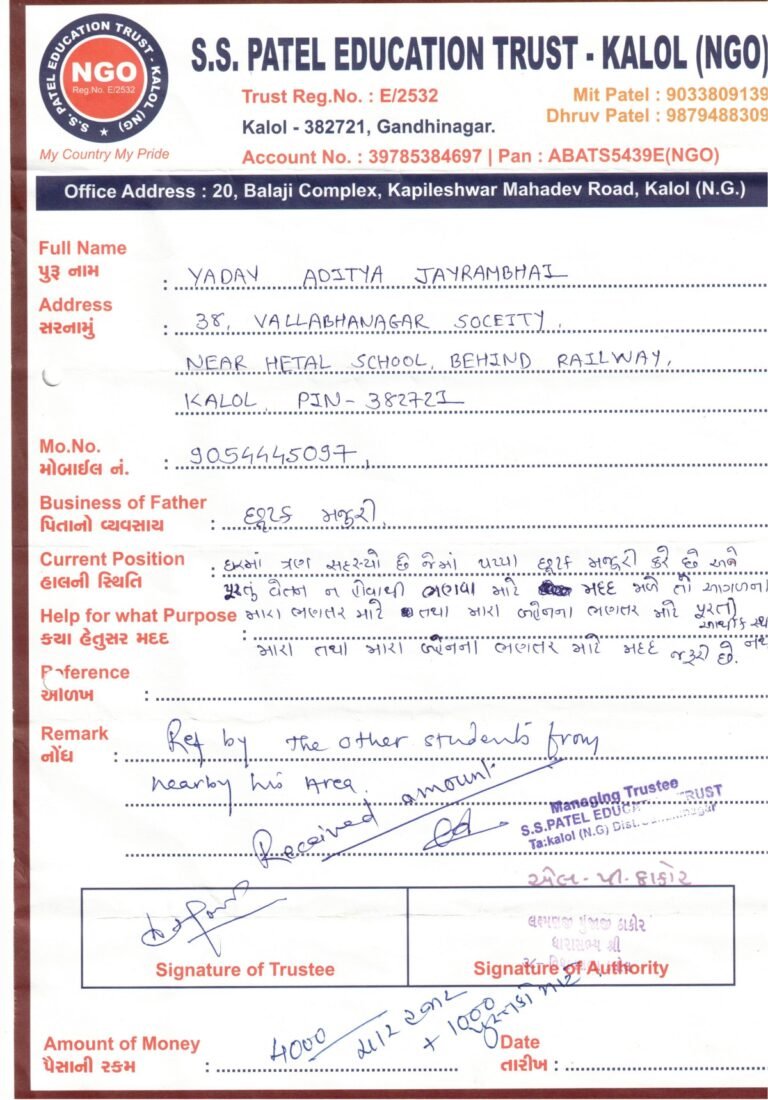 S.S. PATEL EDUCATION TRUST - KALOL (NGO)
NGO
Reg.No. E/2532
S.S. PATEL EDUCATION TRUST - KALOL (NG)
My Country My Pride
Trust Reg.No. : E/2532
Mit Patel : 9033809139
Kalol - 382721, Gandhinagar.
Dhruv Patel : 9879488309
Account No. : 39785384697 | Pan : ABATS5439E(NGO)
Office Address : 20, Balaji Complex, Kapileshwar Mahadev Road, Kalol (N.G.)
Full Name
પુરૂ નામ : YADAV ADITYA JAYRAMBHAI
Address
સરનામું : 38, VALLABHANAGAR SOCEITY,
NEAR HETAL SCHOOL, BEHIND RAILWAY,
KALOL, PIN- 382721
Mo.No.
મોબાઈલ નં. : 9054445097,
Business of Father
પિતાનો વ્યવસાય : છૂટક મજુરી,
Current Position : ઘરમાં ત્રણ સદસ્યો છે જેમાં પપ્પા છૂટક મજુરી કરે છે અને
હાલની સ્થિતિ પૂરતું વેતન ન હોવાથી ભણવા માટે મદદ મળે તો આગળના
Help for what Purpose મારા ભણતર માટે તથા મારા બહેનના ભણતર માટે પૂરતી
કયા હેતુસર મદદ : આર્થીક
મારા તથા મારા બહેનના ભણતર માટે મદદ જરૂરી છે.
Reference
ઓળખ :
Remark Ref by the other students from
નોંધ :
nearby his Area.
Received amount
Managing Trustee
S.S.PATEL EDUC TRUST
Ta:kalol (N.G) Dist.
એલ-પી-ઠાકોર
લક્ષ્મણજી પુંજાજી ઠાકોર
ધારાસભ્ય શ્રી
Signature of Trustee
Signature of Authority
Amount of Money 4000 ચાર હજાર + 1000 પુસ્તકો માટે
પૈસાની રકમ :
Date
તારીખ :